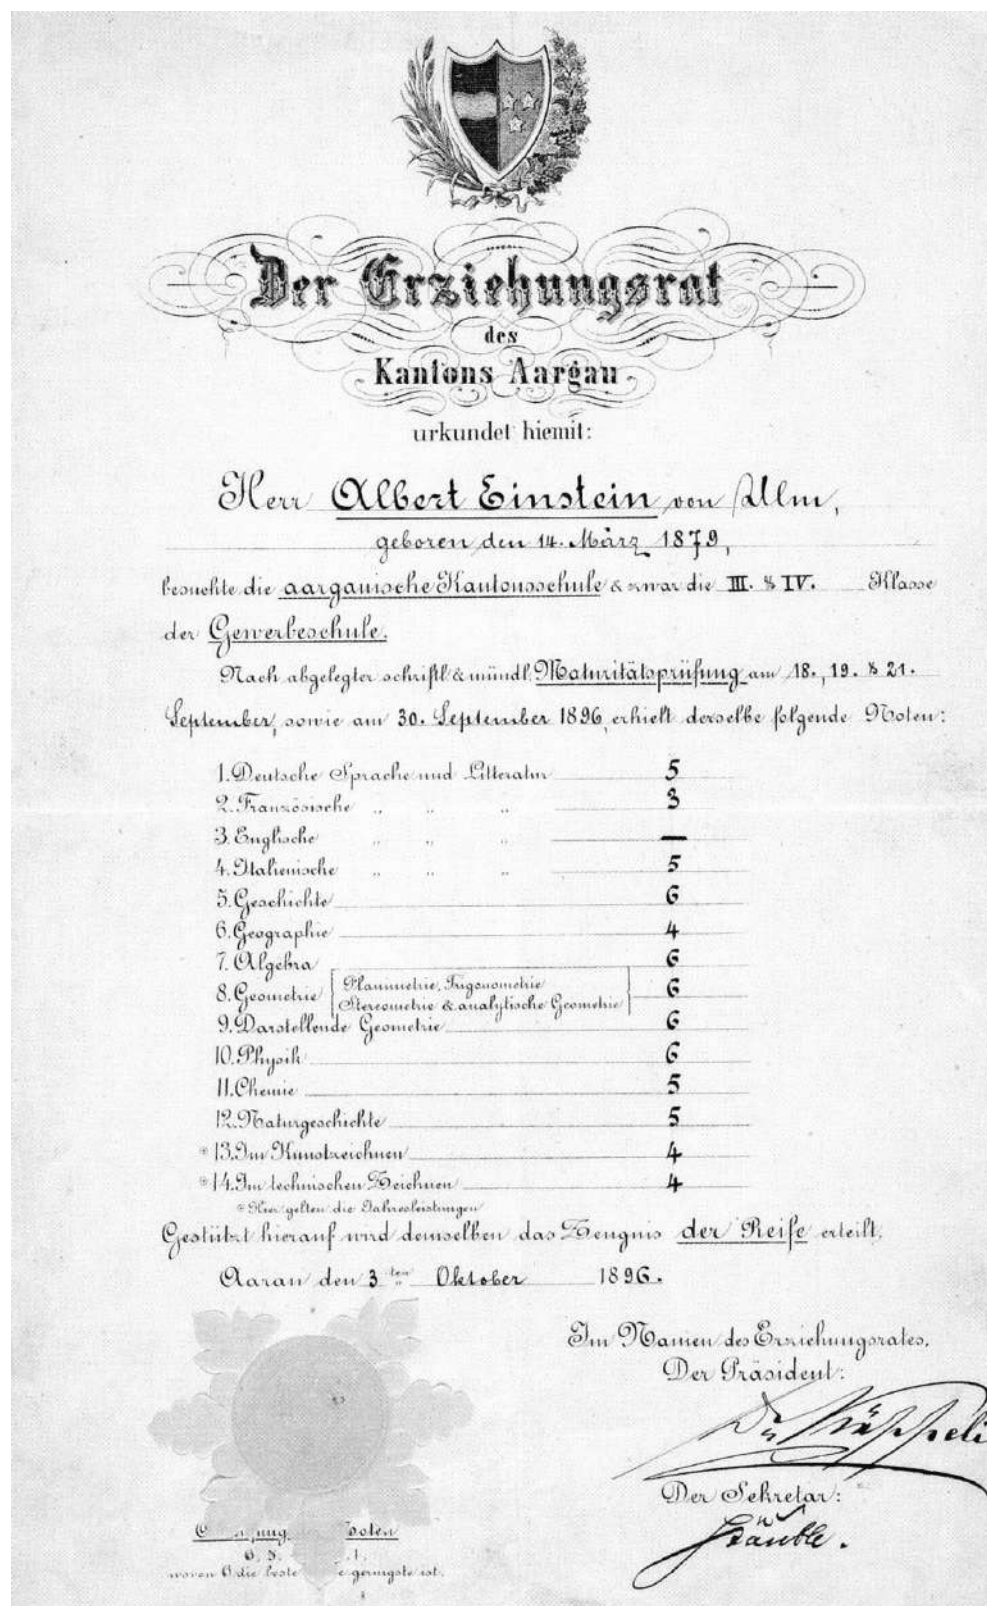 Der Erziehungsrat
des
Kantons Aargau
urkundet hiemit:
Herr Albert Einstein von Ulm,
geboren den 14. März 1879,
besuchte die aargauische Kantonsschule & zwar die III. & IV. Klasse
der Gewerbeschule.
Nach abgelegter schriftl. & mündl. Maturitätsprüfung am 18., 19. & 21.
September, sowie am 30. September 1896, erhielt derselbe folgende Noten:
1. Deutsche Sprache und Litteratur 5
2. Französische „ „ „ 3
3. Englische „ „ „ —
4. Italienische „ „ „ 5
5. Geschichte 6
6. Geographie 4
7. Algebra 6
8. Geometrie [Planimetrie, Trigonometrie
Stereometrie & analytische Geometrie] 6
9. Darstellende Geometrie 6
10. Physik 6
11. Chemie 5
12. Naturgeschichte 5
* 13. Im Kunstzeichnen 4
* 14. Im technischen Zeichnen 4
* Hier gelten die Jahresleistungen
Gestützt hierauf wird demselben das Zeugnis der Reife erteilt.
Aarau den 3ten Oktober 1896.
Im Namen des Erziehungsrates,
Der Präsident:
Der Sekretär:
Noten
6, 5, 1,
wovon 6 die beste geringste ist.